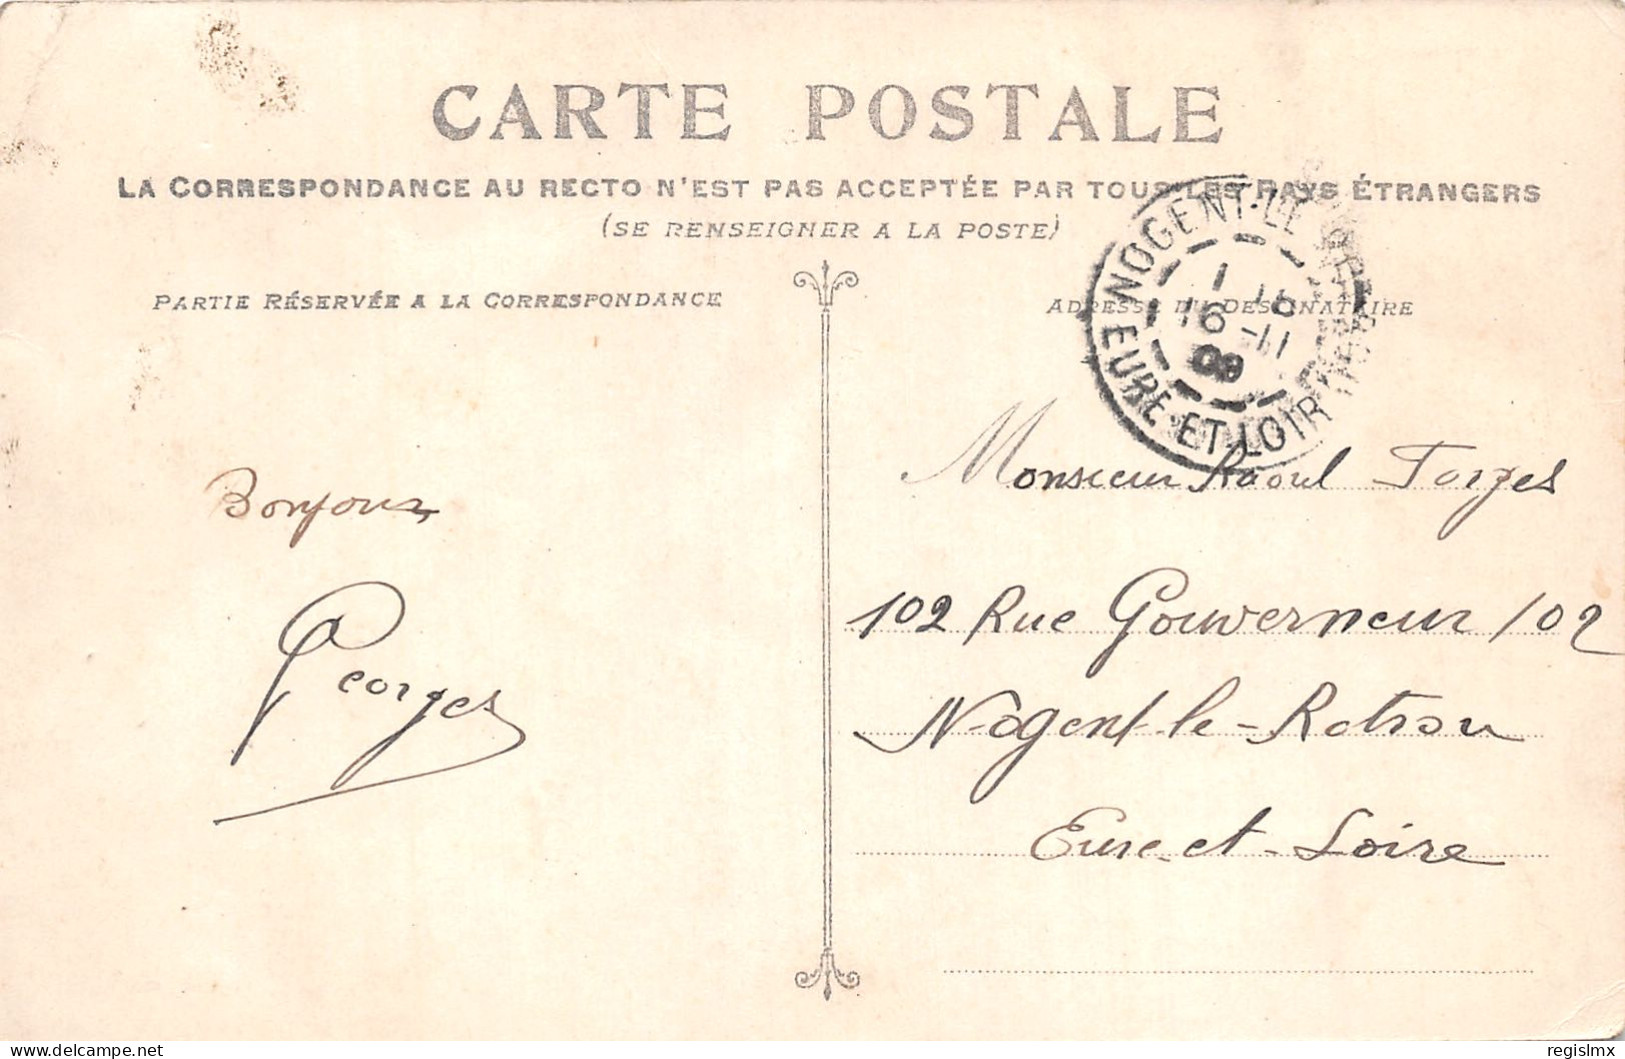 CARTE POSTALE
LA CORRESPONDANCE AU RECTO N'EST PAS ACCEPTÉE PAR TOUS LES PAYS ÉTRANGERS
(SE RENSEIGNER A LA POSTE)
PARTIE RÉSERVÉE A LA CORRESPONDANCE
ADRESSE DU DESTINATAIRE
NOGENT-LE
16 -11
09
EURE-ET-LOIR
Bonjour
Georges
Monsieur Raoul Forges
102 Rue Gouverneur 102
Nogent-le-Rotrou
Eure-et-Loire
delcampe.net
regislmx